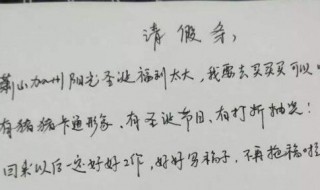 请假条,
萧山加州阳光圣诞福利太大,我要去买买买可以
有猪猪卡通形象、有圣诞节日、有打折抽奖!
回来以后一定好好工作,好好写稿子,不再拖稿啦